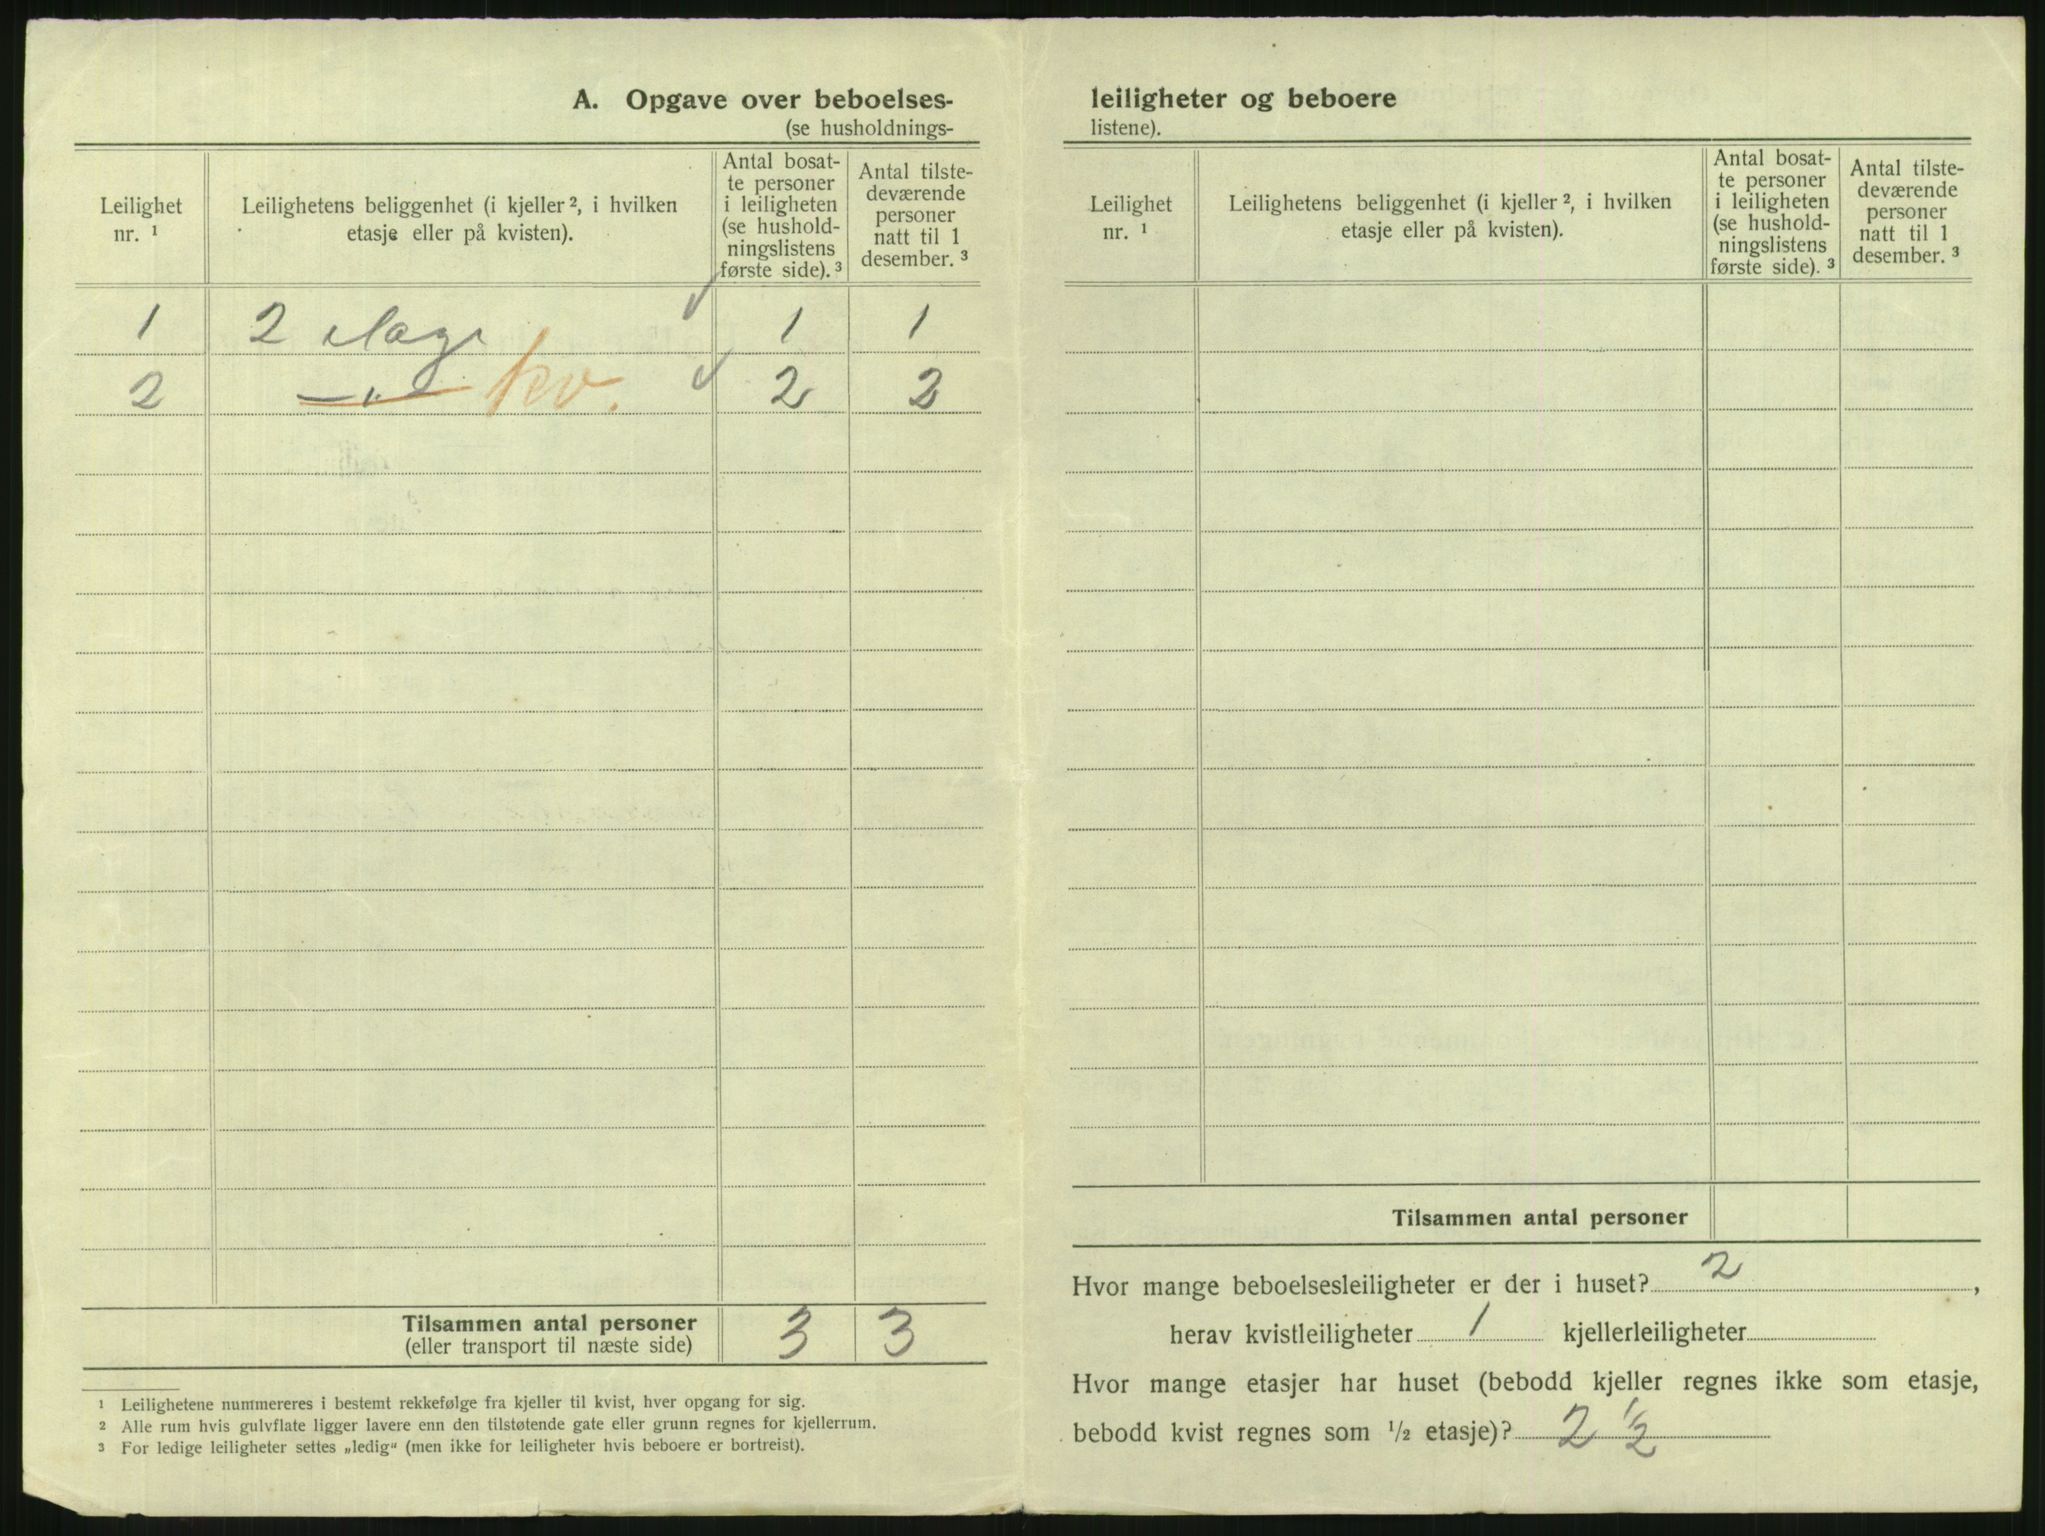 A. Opgave over beboelses-
(se husholdnings-
Leilighet
nr. ¹
Leilighetens beliggenhet (i kjeller ², i hvilken
etasje eller på kvisten).
Antal bosat-
te personer
i leiligheten
(se hushold-
ningslistens
første side). ³
Antal tilste-
deværende
personer
natt til 1
desember. ³
1 2 1 1
2 —„— kv. 2 2
Tilsammen antal personer 3 3
(eller transport til næste side)
¹ Leilighetene nummereres i bestemt rekkefølge fra kjeller til kvist, hver opgang for sig.
² Alle rum hvis gulvflate ligger lavere enn den tilstøtende gate eller grunn regnes for kjellerrum.
³ For ledige leiligheter settes „ledig“ (men ikke for leiligheter hvis beboere er bortreist).
leiligheter og beboere
listene).
Leilighet
nr. ¹
Leilighetens beliggenhet (i kjeller ², i hvilken
etasje eller på kvisten).
Antal bosat-
te personer
i leiligheten
(se hushold-
ningslistens
første side). ³
Antal tilste-
deværende
personer
natt til 1
desember. ³
Tilsammen antal personer
Hvor mange beboelsesleiligheter er der i huset? 2,
herav kvistleiligheter 1 kjellerleiligheter
Hvor mange etasjer har huset (bebodd kjeller regnes ikke som etasje,
bebodd kvist regnes som ½ etasje)? 2 ½